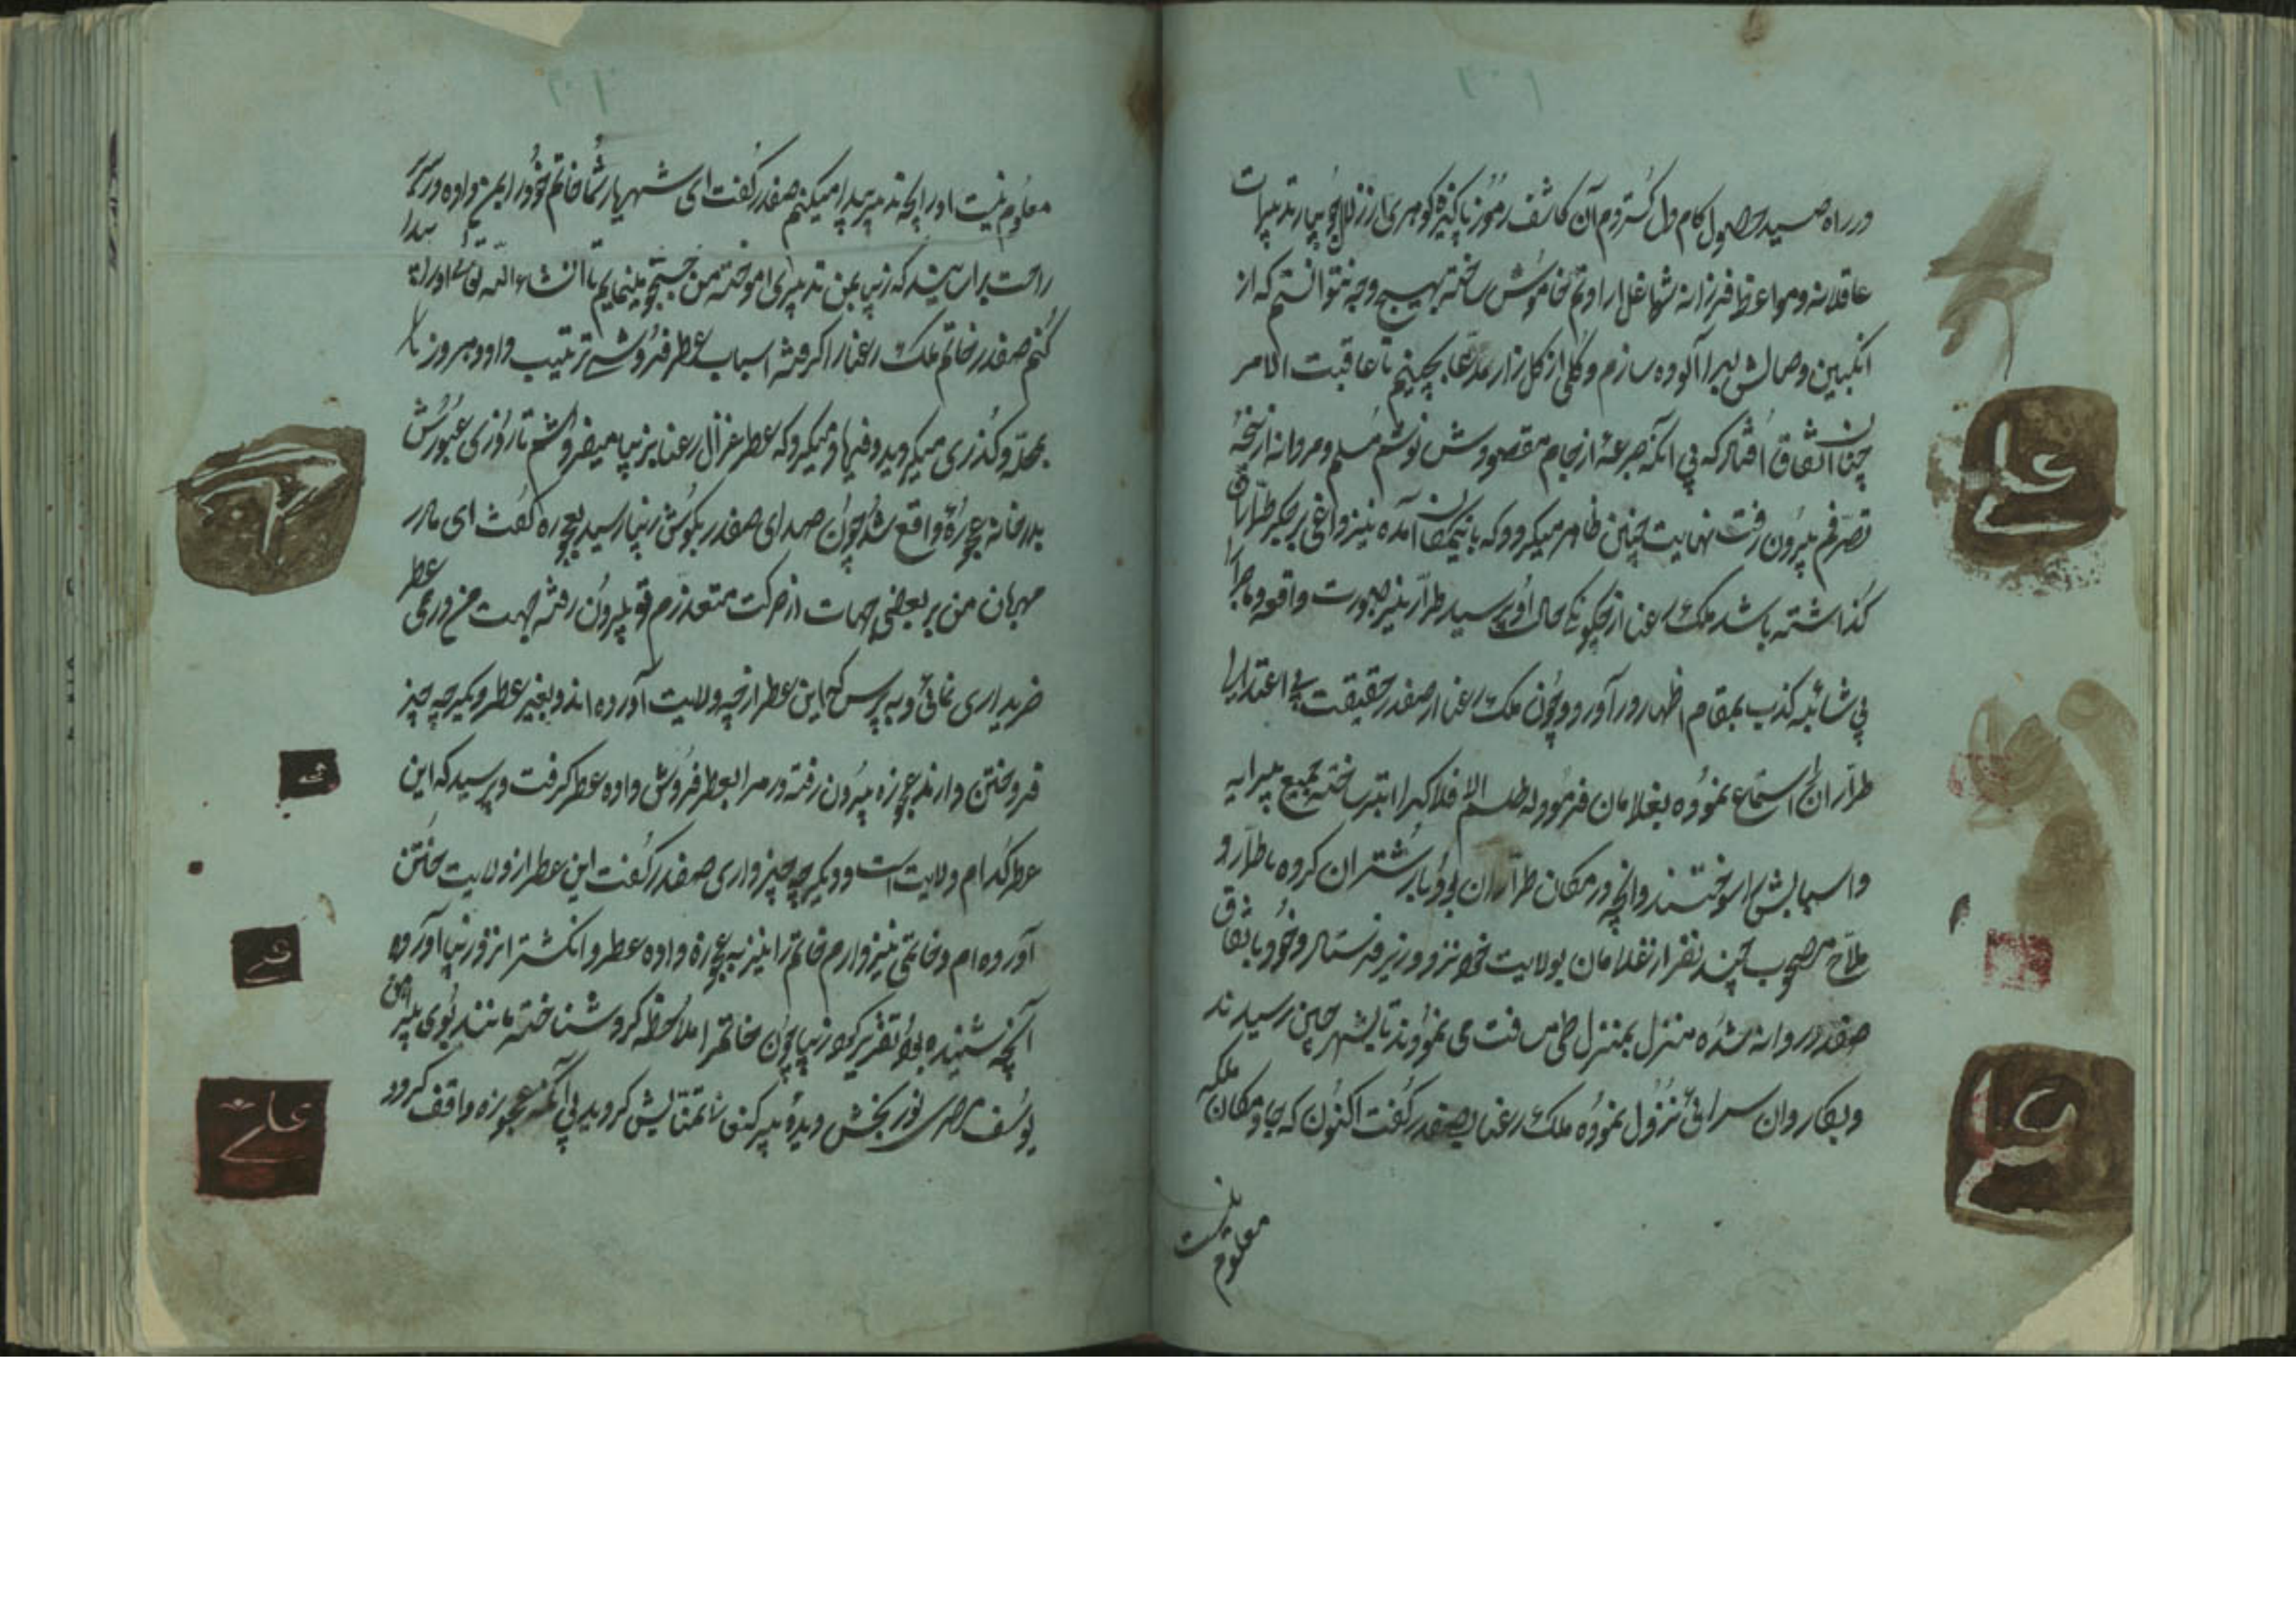 در راه صید حصول کام دل کستردم آن کاشف رموز پاکیزه کوهری از زلال جویبار تدبیرات
عاقلانه و مواعظ فرزانه شها غل ارادتم خاموش ساخته بهیچ وجه نتوانستم که از
انکبین وصالش لبرا آلوده سازم و کلی از کلزار مدعا بچینم تا عاقبت الامر
چنان اتفاق افتاد که بی آنکه جرعهٔ از جام مقصودش نوشم مسلم و مردانه از پنجهٔ
تصرفم بیرون رفت نهایت چنین ظاهر میکردد که بانیمکان آمده نیز داغی برجکر طراران
کذاشته باشد ملک رعنا از چکونکی حال او پرسید طرار نیز صورت واقعه و ماجرا
بی شائبه کذب بمقام اظهار در آورد و چون ملک رعنا از صفدر حقیقت بی اعتدالی
طراران را استماع نموده بغلامان فرمود که طلسم الافلاک را ابتر ساخته جمیع پیرایه
و اسبابش را سوختند و آنچه در مکان طراران بود بار شتران کرده با طرار و
ملاح مصحوب چند نفر از غلامان بولایت خود نزد وزیر فرستاد و خود باتفاق
صفدر روانه شده منزل بمنزل طی مسافت می نمودند تا بشهر چین رسیدند
و بکاروان سرائی نزول نموده ملک رعنا بصفدر کفت اکنون که جا و مکان ملکه
معلوم نیست
معلوم نیست او را بچه تدبیر پیدا میکنم صفدر کفت ای شهریار شما خاتم خود را بمن داده در سرای
راحت براسائید که زیبا بمن تدبیری اموخته من جستجو مینمایم تا انشاء الله تعالی او را پیدا
کنم صفدر خاتم ملک رعنا را کرفته اسباب عطر فروشی ترتیب داد و هر روز با
بمحله و کذری میکردید و فریاد میکرد که عطر غزال رعنا بزیبا میفروشم تا روزی عبورش
بدر خانه عجوزهٔ واقع شد چون صدای صفدر بکوش زیبا رسید بعجوزه کفت ای مادر
مهربان من بر بعضی جهات از حرکت متعذرم تو بیرون رفته جهت من درمی عطر
خریداری نمائی و به پرس که این عطر از چه ولایت آورده اند و بغیر عطر دیکر چه چیز
فروختن دارند عجوزه بیرون رفته درم را بعطر فروش داده عطر کرفت و پرسید که این
عطر کدام ولایت است و دیکر چه چیز داری صفدر کفت این عطر از ولایت ختن
آورده ام و خاتمی نیز دارم خاتم را نیز به عجوزه داده عطر و انکشتر را نزد زیبا آورده
آنچه شنیده بود تقریر کرد زیبا چون خاتم را ملاحظه کرد شناخته مانند بوی پیراهن
یوسف مصری نور بخش دیدهٔ پیر کنعان تمنایش کردید بی آنکه عجوزه واقف کردد
علی
علی
علی